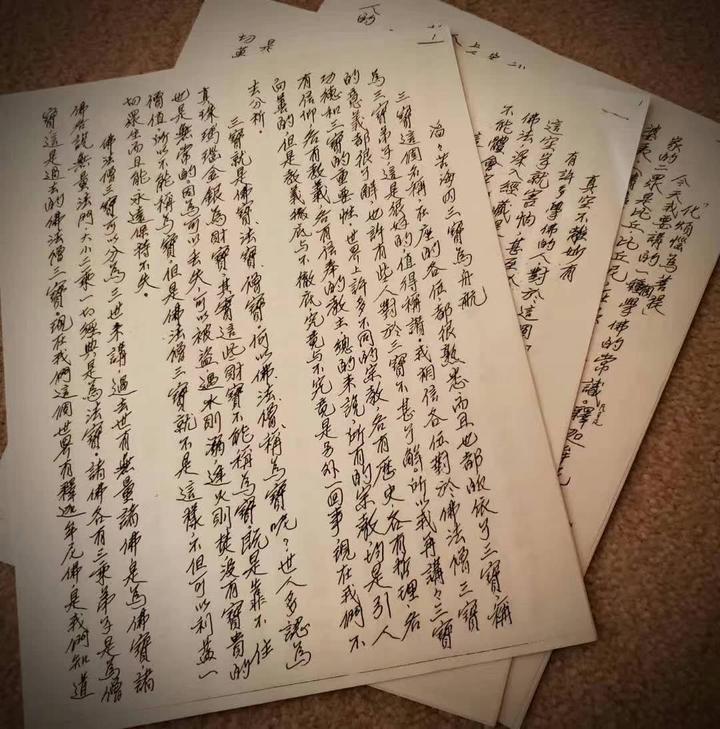 滔々苦海內三寶為舟航
三寶這個名稱，在座的各位都很熟悉而且也都飯依了三寶稱
為三寶弟子，這是很好的，值得稱讚。我相信各位對於佛法僧三寶
的意義都很了解，也許有些人對於三寶不甚了解。所以我再講々三寶
功德和三寶的重要性。世界上許多不同的宗教，各有歷史，各有哲理，各
有信仰，各有教義，各有信奉的教主，總的來說，所有的宗教均是引人
向善的，但是教義徹底与不徹底，究竟与不究竟，是另外一回事，現在我們不
去分析。
三寶就是佛寶、法寶、僧寶，何以佛法僧、稱為寶呢？世人多認為
真珠瑪瑙金銀為財寶，其實這些財寶不能稱為寶，既是靠不住
也是無常的，因為可以丟失，可以被盜，遇水則漏，逢火則焚，沒有寶貴的
價值，所以不能稱為寶，但是佛法僧三寶，就不是這樣，不但可以利益一
切眾生，而且能永遠保持不失。
佛法僧三寶可以分為三世來講，過去世有無量諸佛是為佛寶，諸
佛各說無量法門，大小二乘一切經典是為法寶，諸佛各有三乘弟子是為僧
寶，這是過去的佛法僧三寶，現在我們這個世界有釋迦牟尼佛，是我們知道
真空不離妙有
有許多學佛的人對於這個
這空字就害怕，甚至
佛法深入經藏
不能體會
化煩惱為菩提
今天我要講的
學佛的常識，釋迦牟尼
家的二眾是比丘比丘尼